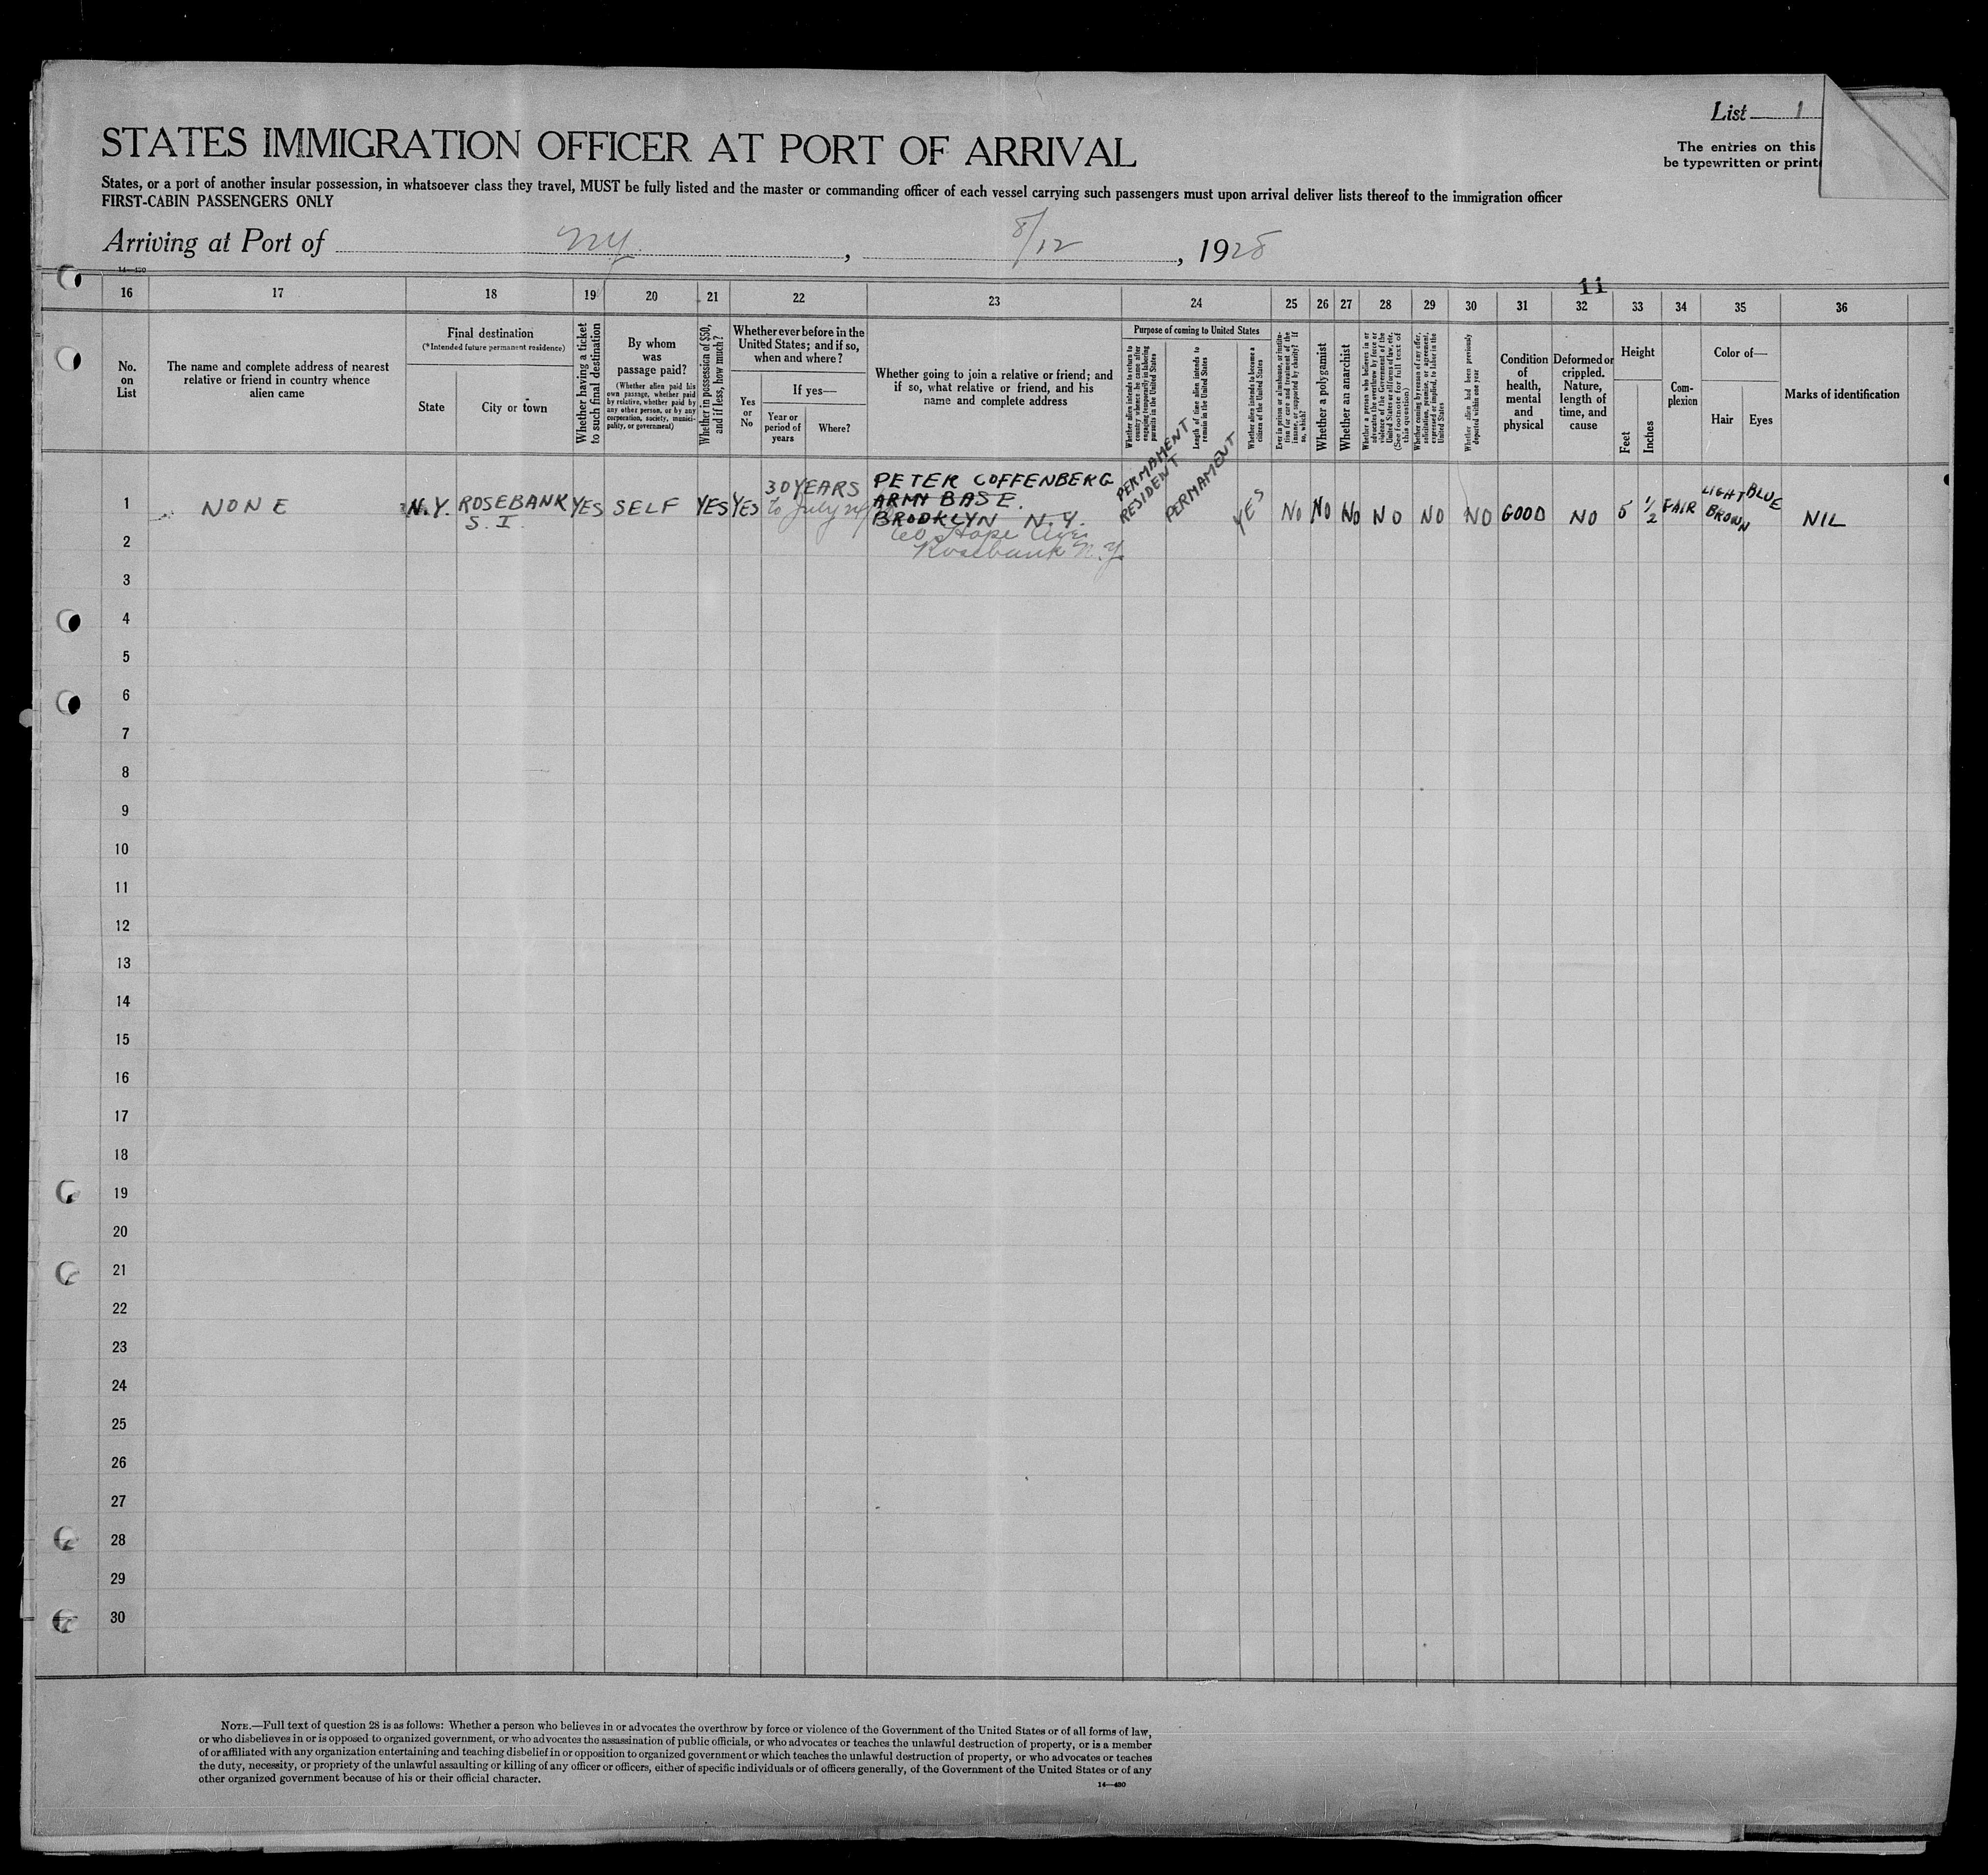 List 1
STATES IMMIGRATION OFFICER AT PORT OF ARRIVAL
The entries on this
be typewritten or print
States, or a port of another insular possession, in whatsoever class they travel, MUST be fully listed and the master or commanding officer of each vessel carrying such passengers must upon arrival deliver lists thereof to the immigration officer
FIRST-CABIN PASSENGERS ONLY
Arriving at Port of NY , 8/12 , 1928
14—430
11
16 17 18 19 20 21 22 23 24 25 26 27 28 29 30 31 32 33 34 35 36
No.
on
List
The name and complete address of nearest
relative or friend in country whence
alien came
Final destination
(*Intended future permanent residence)
State
City or town
Whether having a ticket
to such final destination
By whom
was
passage paid?
(Whether alien paid his
own passage, whether paid
by relative, whether paid by
any other person, or by any
corporation, society, munici-
pality, or government)
Whether in possession of $50,
and if less, how much?
Whether ever before in the
United States; and if so,
when and where?
Yes
or
No
If yes—
Year or
period of
years
Where?
Whether going to join a relative or friend; and
if so, what relative or friend, and his
name and complete address
Purpose of coming to United States
Whether alien intends to return to
country whence he came after
engaging temporarily in laboring
pursuits in the United States
Length of time alien intends to
remain in the United States
Whether alien intends to become a
citizen of the United States
Ever in prison or almshouse, or institu-
tion for care and treatment of the
insane, or supported by charity? If
so, which?
Whether a polygamist
Whether an anarchist
Whether a person who believes in or
advocates the overthrow by force or
violence of the Government of the
United States or all forms of law, etc.
(See footnote for full text of
this question)
Whether coming by reason of any offer,
solicitation, promise, or agreement,
expressed or implied, to labor in the
United States
Whether alien had been previously
deported within one year
Condition
of
health,
mental
and
physical
Deformed or
crippled.
Nature,
length of
time, and
cause
Height
Feet
Inches
Com-
plexion
Color of—
Hair
Eyes
Marks of identification
1 NONE N.Y. ROSEBANK S. I. YES SELF YES YES 30 YEARS to July
PETER COFFENBERG
ARMY BASE.
BROOKLYN N.Y.
Hope Ave
Rosebank N.Y.
PERMAMENT
RESIDENT
PERMAMENT
YES
NO NO NO NO NO NO GOOD NO 5 1/2 FAIR LIGHT BROWN BLUE NIL
2
3
4
5
6
7
8
9
10
11
12
13
14
15
16
17
18
19
20
21
22
23
24
25
26
27
28
29
30
NOTE.—Full text of question 28 is as follows: Whether a person who believes in or advocates the overthrow by force or violence of the Government of the United States or of all forms of law,
or who disbelieves in or is opposed to organized government, or who advocates the assassination of public officials, or who advocates or teaches the unlawful destruction of property, or is a member
of or affiliated with any organization entertaining and teaching disbelief in or opposition to organized government or which teaches the unlawful destruction of property, or who advocates or teaches
the duty, necessity, or propriety of the unlawful assaulting or killing of any officer or officers, either of specific individuals or of officers generally, of the Government of the United States or of any
other organized government because of his or their official character.
14—430